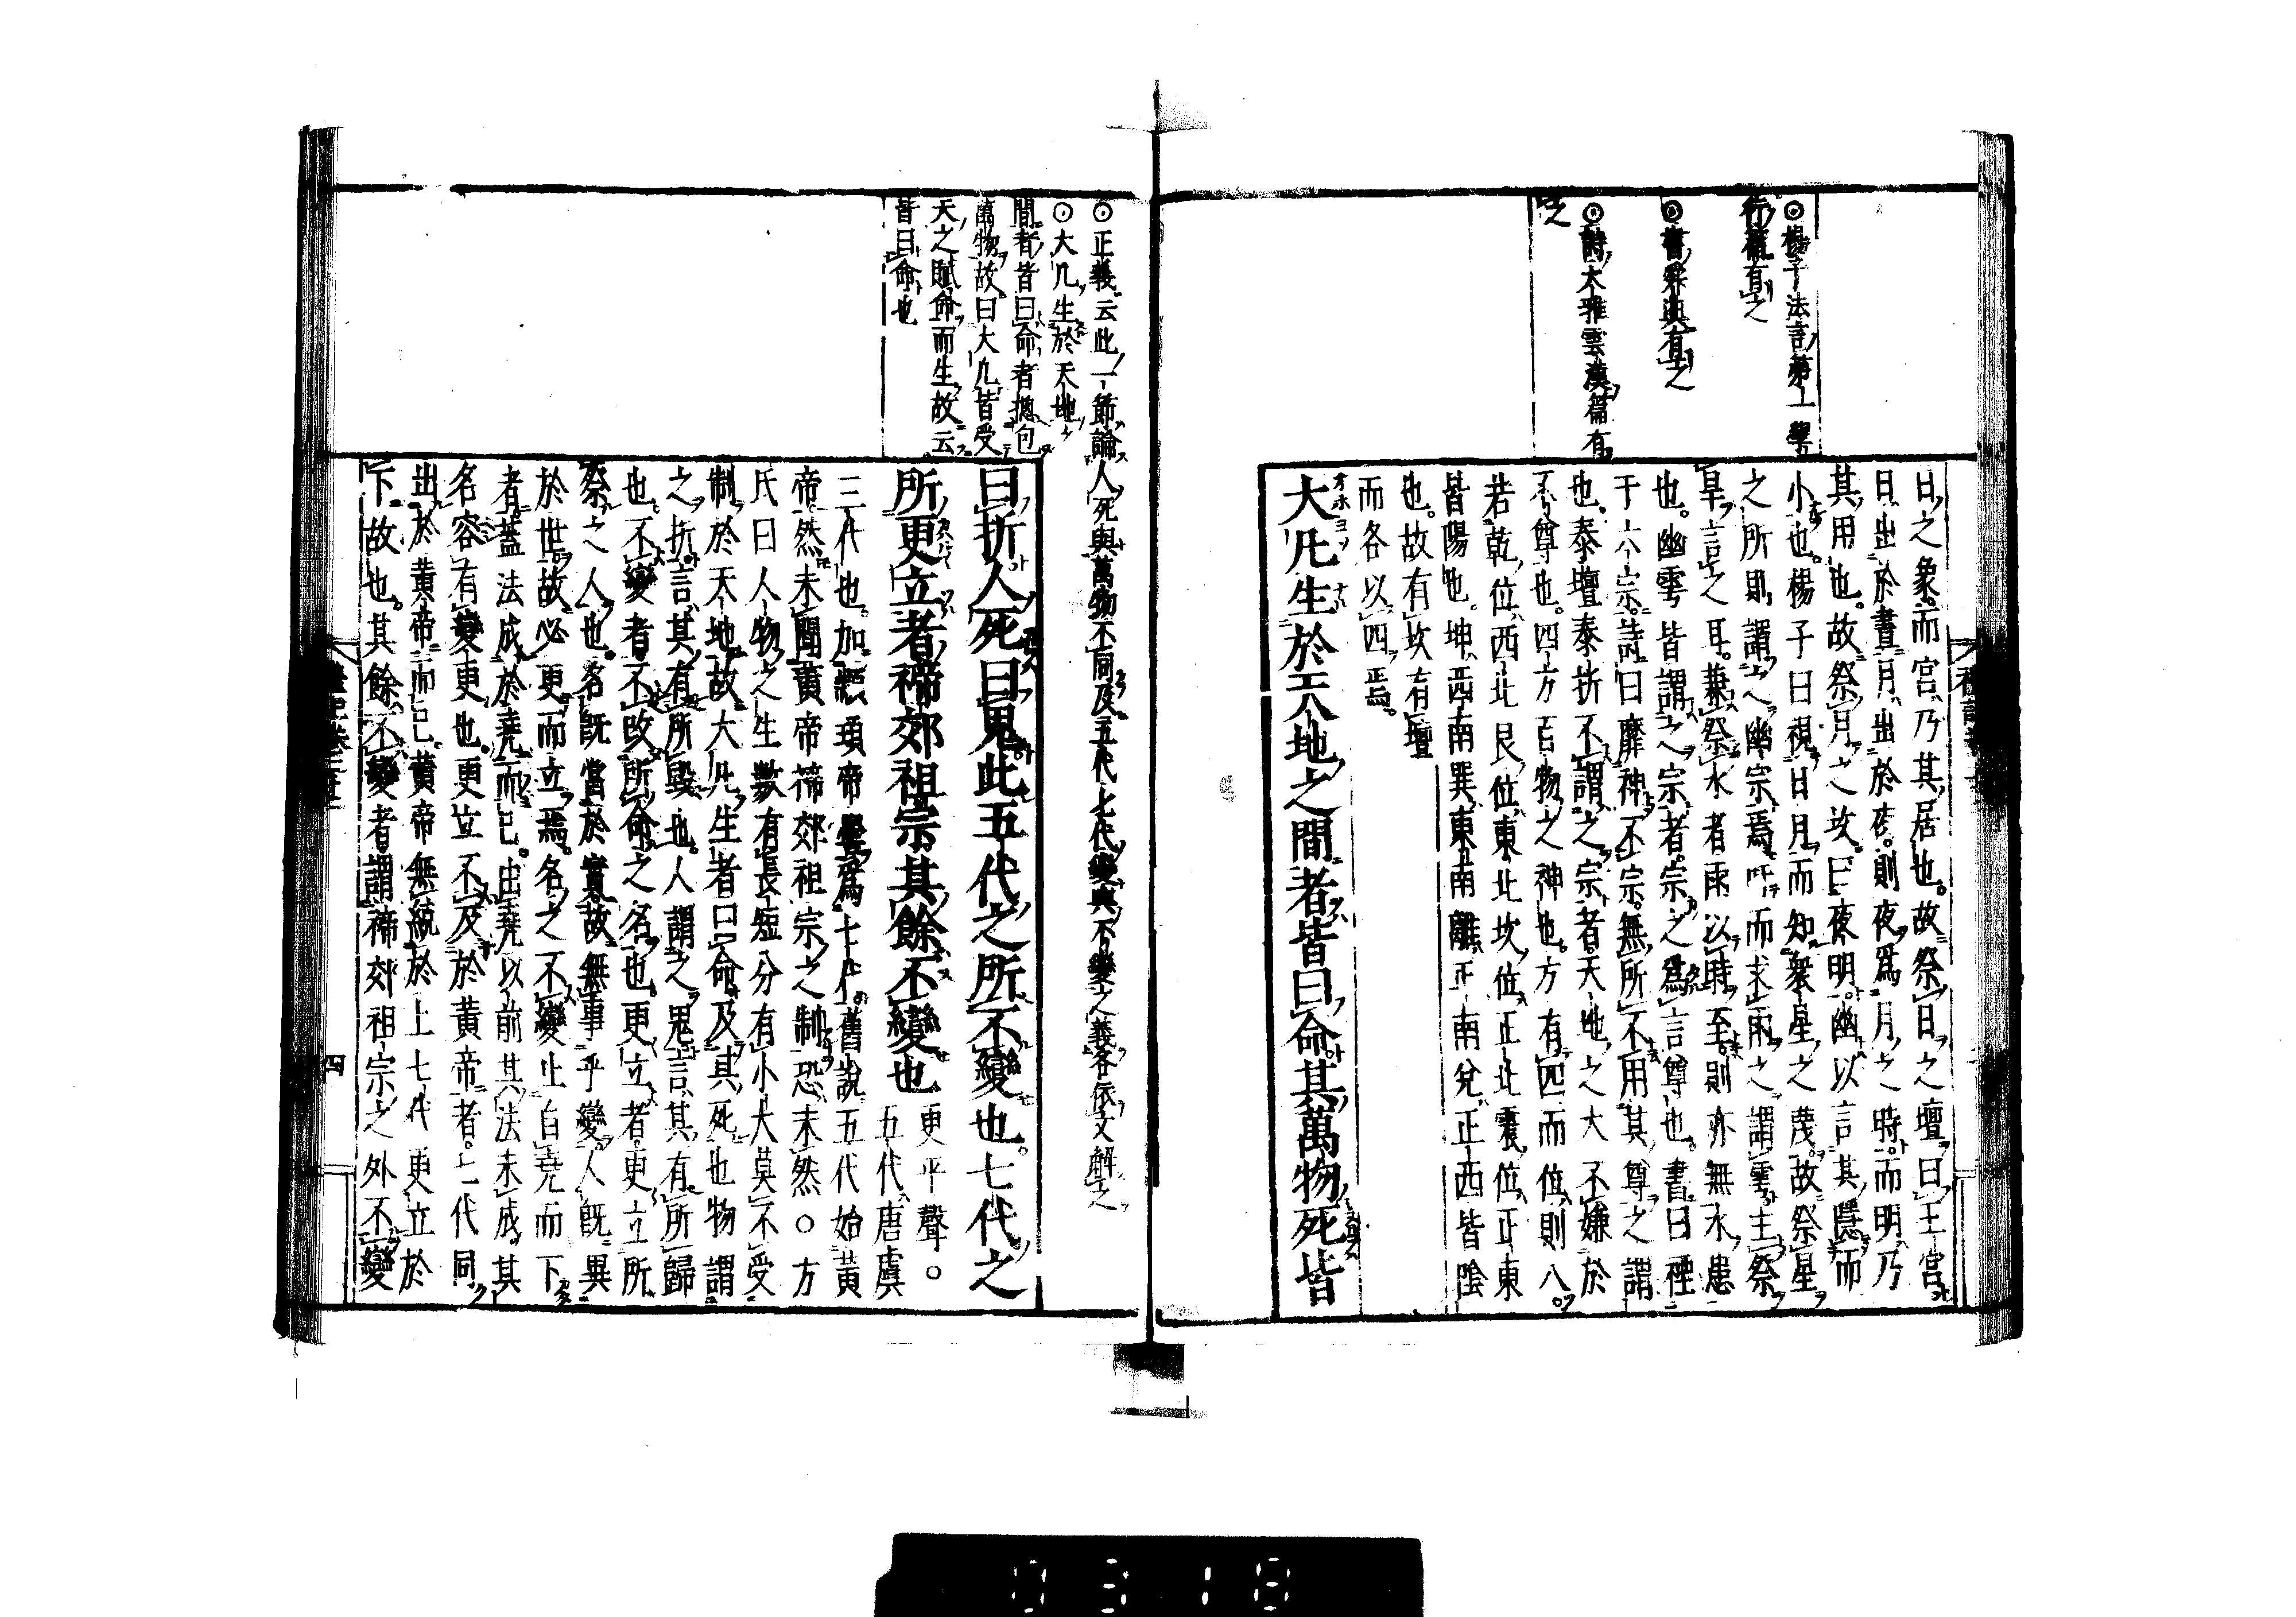 ◎楊子法言第一學
行篇有之
◎書舜典有之
◎詩大雅雲漢篇有
之
日之象而宮乃其居也故祭日之壇曰王宮
日出於晝月出於夜則夜爲月之時而明乃
其用也故祭月之坎曰夜明幽以言其隱而
小也楊子曰視日月而知衆星之蔑故祭星
之所則謂之幽宗焉吁而求雨之謂雩主祭
旱言之耳兼祭水者雨以時至則亦無水患
也幽雩皆謂之宗者宗之爲言尊也書曰禋
于六宗詩曰靡神不宗無所不用其尊之謂
也泰壇泰折不謂之宗者天地之大不嫌於
不尊也四方百物之神也方有四而位則八
若乾位西北艮位東北坎位正北震位正東
皆陽也坤西南巽東南離正南兌正西皆陰
也故有坎有壇
而各以四焉
大凡生於天地之間者皆曰命其萬物死皆
◎正義云此一節論人死與萬物不同及五代七代變與不變之義各依文解之
◎大凡生於天地之
間者皆曰命者摠包
萬物故曰大凡皆受
天之賦命而生故云
皆曰命也
曰折人死曰鬼此五代之所不變也七代之
所更立者禘郊祖宗其餘不變也
更平聲○
五代唐虞
三代也加顓頊帝嚳爲七代舊說五代始黃
帝然未聞黃帝禘郊祖宗之制恐未然○方
氏曰人物之生數有長短分有小大莫不受
制於天地故大凡生者曰命及其死也物謂
之折言其有所毀也人謂之鬼言其有所歸
也不變者不改所命之名也更立者更立所
祭之人也名旣當於實故無事乎變人旣異
於世故必更而立焉名之不變止自堯而下
者蓋法成於堯而已由堯以前其法未成其
名容有變更也更立不及於黃帝者七代同
出於黃帝而已黃帝無統於上七代更立於
下故也其餘不變者謂禘郊祖宗之外不變
四
0318